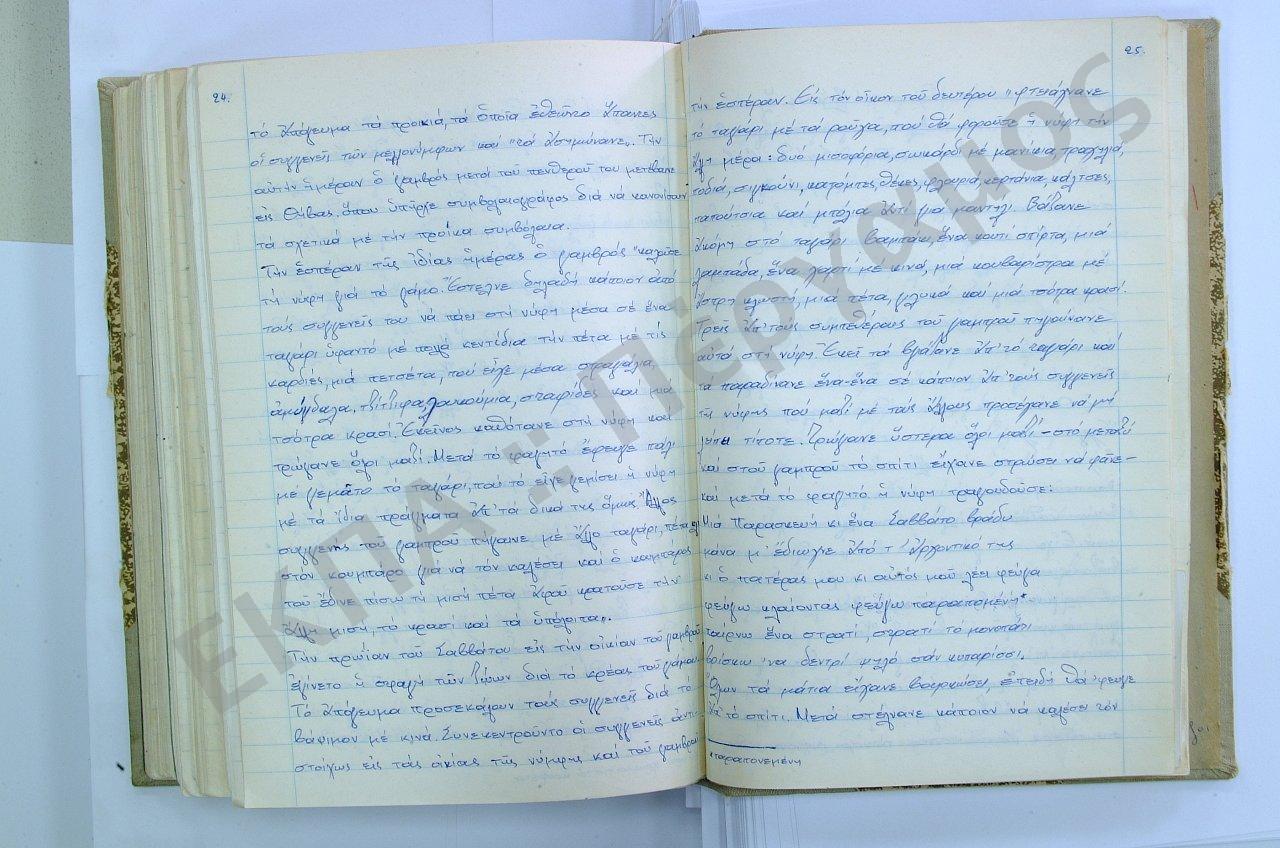 24.
τό ἀπόγευμα τά προικιά, τά ὁποῖα ἐθεῶντο ἅπαντες
οἱ συγγενεῖς τῶν μελλονύμφων καί "τά ἀσημώνανε". Τήν
αὐτήν ἡμέραν ὁ γαμβρός μετά τοῦ πενθεροῦ του μετέβαινε
εἰς Θήβας, ὅπου ὑπῆρχε συμβολαιογράφος διά νά κανονίσουν
τά σχετικά μέ τήν προίκα συμβόλαια.
Τήν ἑσπέραν τῆς ἰδίας ἡμέρας ὁ γαμβρός "καλοῦσε
τή νύφη γιά τό γάμο. Ἔστελνε δηλαδή κάποιον ἀπό
τούς συγγενεῖς του νά πάει στή νύφη μέσα σέ ἕνα
ταγάρι ὑφαντό μέ πολλά κεντίδια τήν πέτα μέ τίς
καρδιές, μιά πετσέτα, πού εἶχε μέσα στραγάλια,
ἀμύγδαλα, τζίτζιφα, λουκούμια, σταφίδες καί μιά
τσότρα κρασί. Ἐκεῖνος καθότανε στή νύφη καί
τρώγανε ὅλοι μαζί. Μετά τό φαγητό ἔφευγε πάλι
μέ γεμάτο τό ταγάρι, πού τό εἶχε γεμίσει ἡ νύφη
μέ τά ἴδια πράγματα ἀπ' τά δικά της ὅμως. Ἄλλος
συγγενής τοῦ γαμπροῦ πήγαινε μέ ἄλλο ταγάρι, πέτα κλ
στόν κουμπάρο γιά νά τόν καλέσει καί ὁ κουμπάρος
τοῦ ἔδινε πίσω τή μισή πέτα ἀφοῦ κρατοῦσε τήν
ἄλλη μισή, τό κρασί καί τά ὑπόλοιπα".
Τήν πρωίαν τοῦ Σαββάτου εἰς τήν οἰκίαν τοῦ γαμβροῦ
ἐγίνετο ἡ σφαγή τῶν ζώων διά τό κρέας τοῦ γάμου.
Τό ἀπόγευμα προσεκάλουν τούς συγγενεῖς διά τό
βάψιμον μέ κινά. Συνεκεντροῦντο οἱ συγγενεῖς ἀντι-
στοίχως εἰς τάς οἰκίας τῆς νύμφης καί τοῦ γαμβροῦ
25.
τήν ἑσπέραν. Εἰς τόν οἶκον τοῦ δευτέρου "φτειάχνανε
τό ταγάρι μέ τά ροῦχα, πού θά φοροῦσε ἡ νύφη τήν
ἄλλη μέρα: δυό μισοφόρια, σωκάρδι μέ μανίκια, τραχηλιά,
ποδιά, σιγκούνι, κατόμπες, θέκες, φλουριά, κερτάνια, κάλτσες,
παπούτσια καί μπόλια ἀντί γιά μαντήλι. Βάζανε
ἀκόμη στό ταγάρι βαμπάκι, ἕνα κουτί σπίρτα, μιά
λαμπάδα, ἕνα χαρτί μέ κινά, μιά κουβαρίστρα μέ
ἄσπρη κλωστή, μιά πέτα, γλυκά καί μιά τσότρα κρασί.
Τρεῖς ἀπ' τούς συμπεθέρους τοῦ γαμπροῦ πηγαίνανε
αὐτά στή νύφη. Ἐκεῖ τά βγάζανε ἀπ' τό ταγάρι καί
τά παραδίνανε ἕνα-ἕνα σέ κάποιον ἀπ' τούς συγγενεῖς
τῆς νύφης πού μαζί μέ τούς ἄλλους προσέχανε νά μή
λείπει τίποτε. Τρώγανε ὕστερα ὅλοι μαζί – στό μεταξύ
καί στοῦ γαμπροῦ τό σπίτι εἴχανε στρώσει νά φᾶνε –
καί μετά τό φαγητό ἡ νύφη τραγουδοῦσε:
Μιά Παρασκευή κι ἕνα Σαββάτο βράδυ
μάνα μ' ἔδιωχνε ἀπό τ' ἀρχοντικό της
κι ὁ πατέρας μου κι αὐτός μοῦ λέει φεύγα
φεύγω κλαίοντας φεύγω παραπομένη*
παίρνω ἕνα στρατί, στρατί τό μονοπάτι
βρίσκω 'να δεντρί ψηλό σάν κυπαρίσσι.
Ὅλων τά μάτια εἴχανε βουρκώσει, ἐπειδή θά 'φευγε
ἀπ' τό σπίτι. Μετά στέλνανε κάποιον νά καλέσει τόν
*παραπονεμένη
ΕΚΠΑ :: Πέργαμος